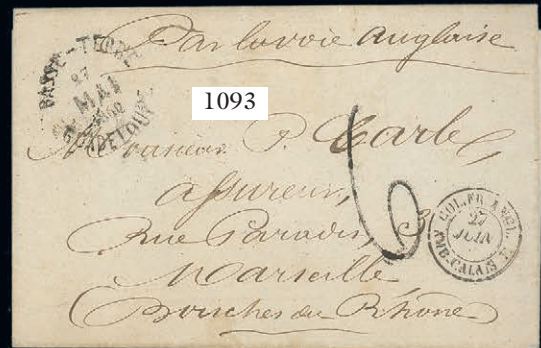 Par la voie Anglaise
BASSE-TERRE
27
MAI
GUADELOUPE
1093
Monsieur P.
assureur,
Rue Paradis, 6
Marseille
Bouches du Rhône
COL.FR ANGL.
27
JUIN
AMB-CALAIS